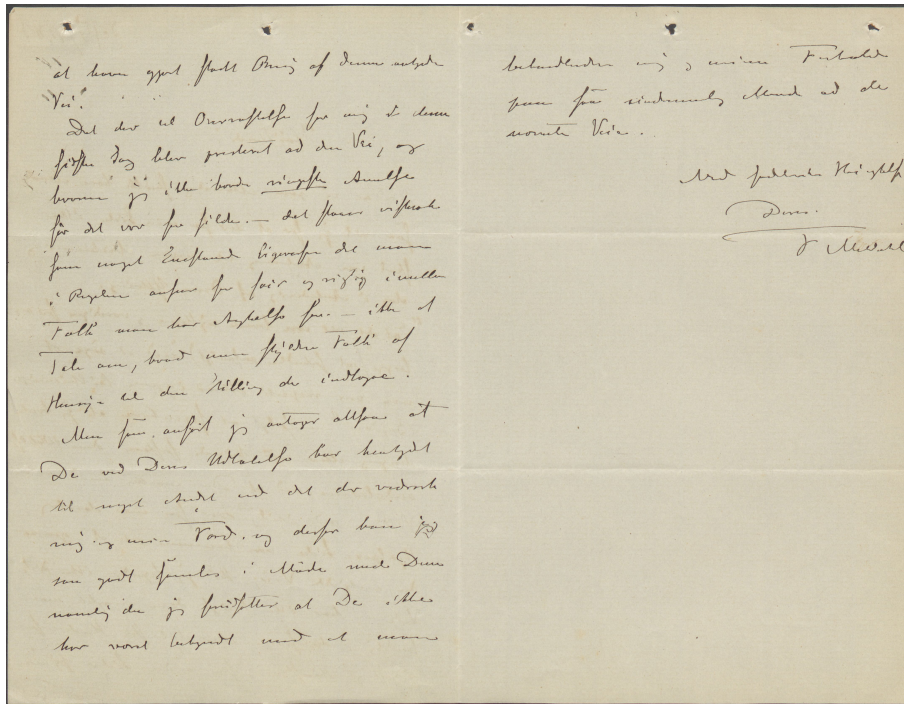 at have gjort stadt Brug af denne
Vei.
Det der til Overraskelse for mig i denne
sidste Sag blev presteret ad den Vei, og
hvorom jeg ikke havde ringeste Anelse
før det var for silde. — det staaer
som noget Enestaaende ligeoverfor det man
i Regelen anseer for fair og rigtig imellem
Folk man har Agtelse for. — ikke at
Tale om, hvad man skylder Folk af
Hensyn til den Stilling de indtage.
Men som anført jeg antager altsaa at
De ved Deres Udtalelse har hentydet
til noget Andet end det der vedrører
mig og min Færd. og derfor kan jeg
saa godt samles i Møde med Dem
nemlig da jeg forudsætter at De ikke
har været bekjendt med at man
behandlede mig og mine Forhold
paa saa Maade ad de
nævnte Veie.
Med Høiagtelse
Deres.